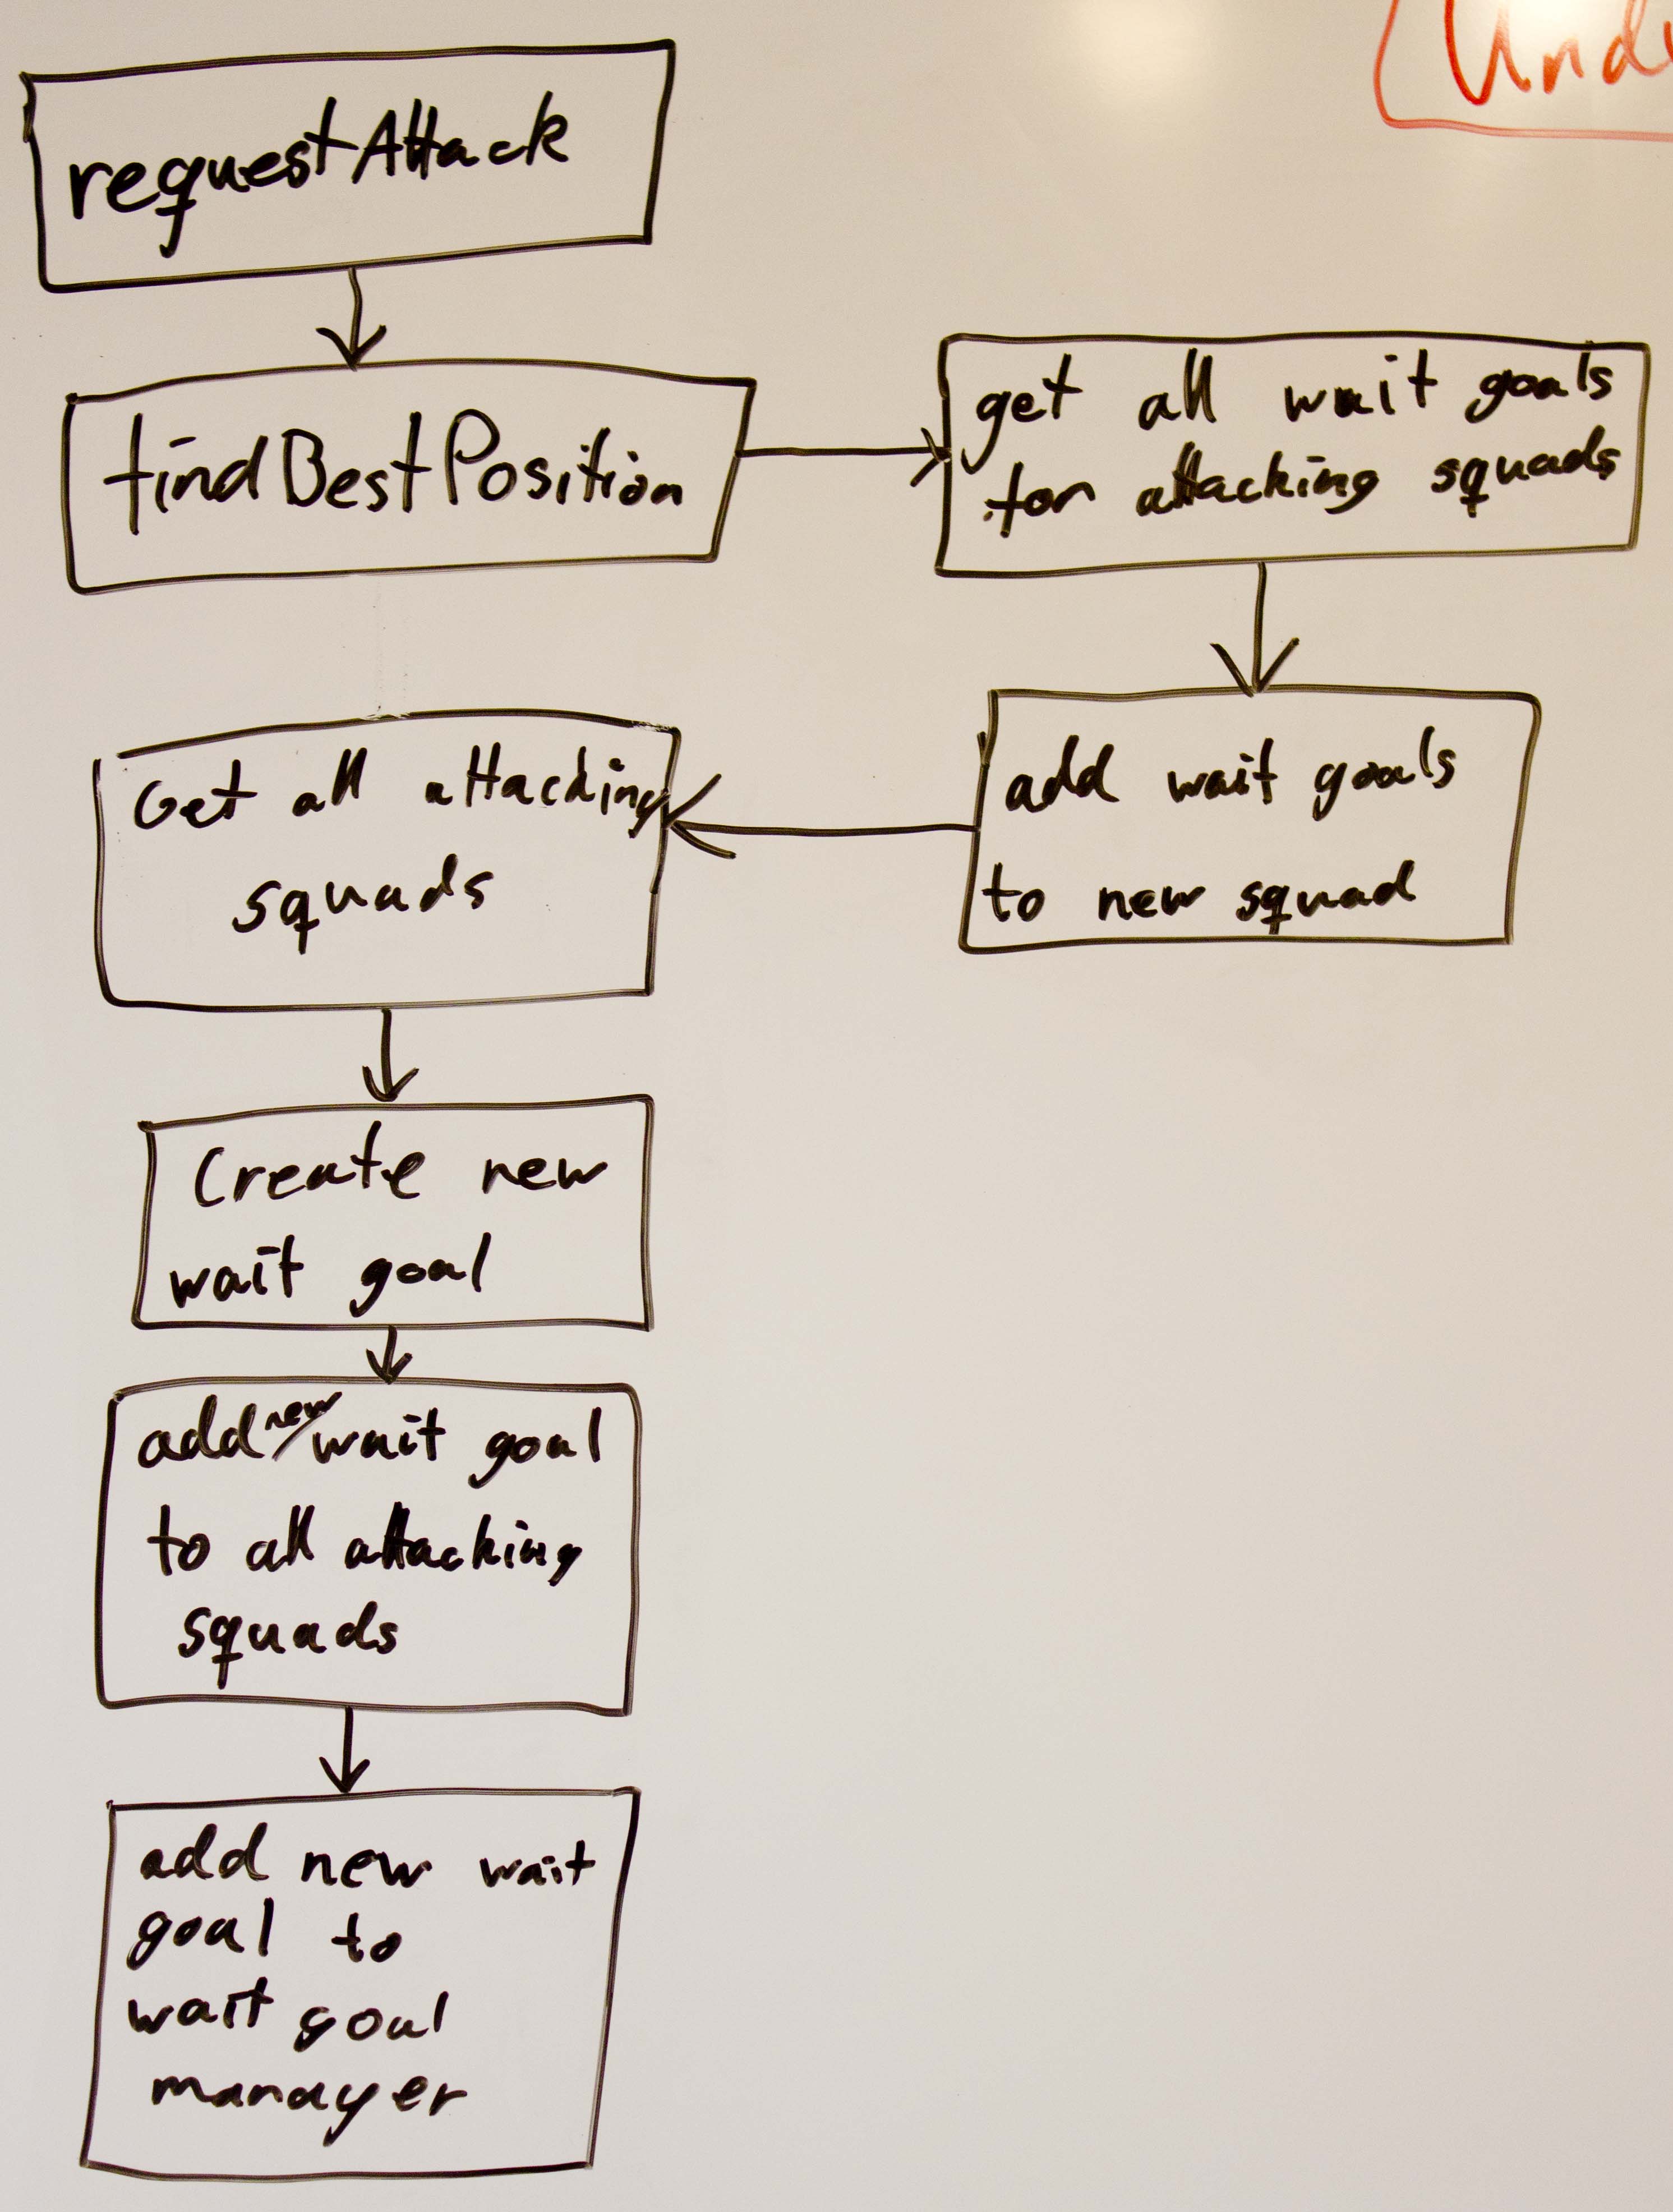 requestAttack
findBestPosition
get all wait goals
for attacking squads
add wait goals
to new squad
Get all attacking
squads
Create new
wait goal
add new wait goal
to all attacking
squads
add new wait
goal to
wait goal
manager